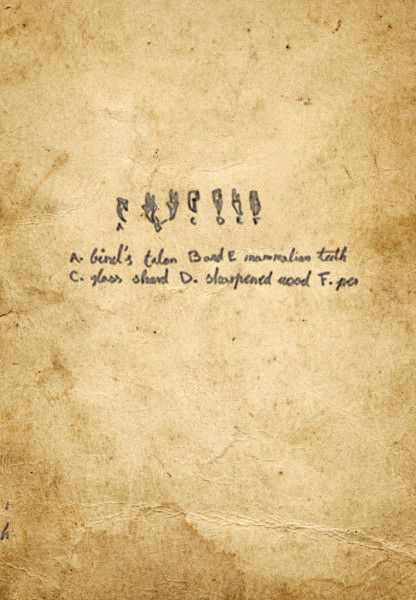 A C D E F
A. bird's talon B and E mammalian teeth
C. glass shard D. sharpened wood F. pen